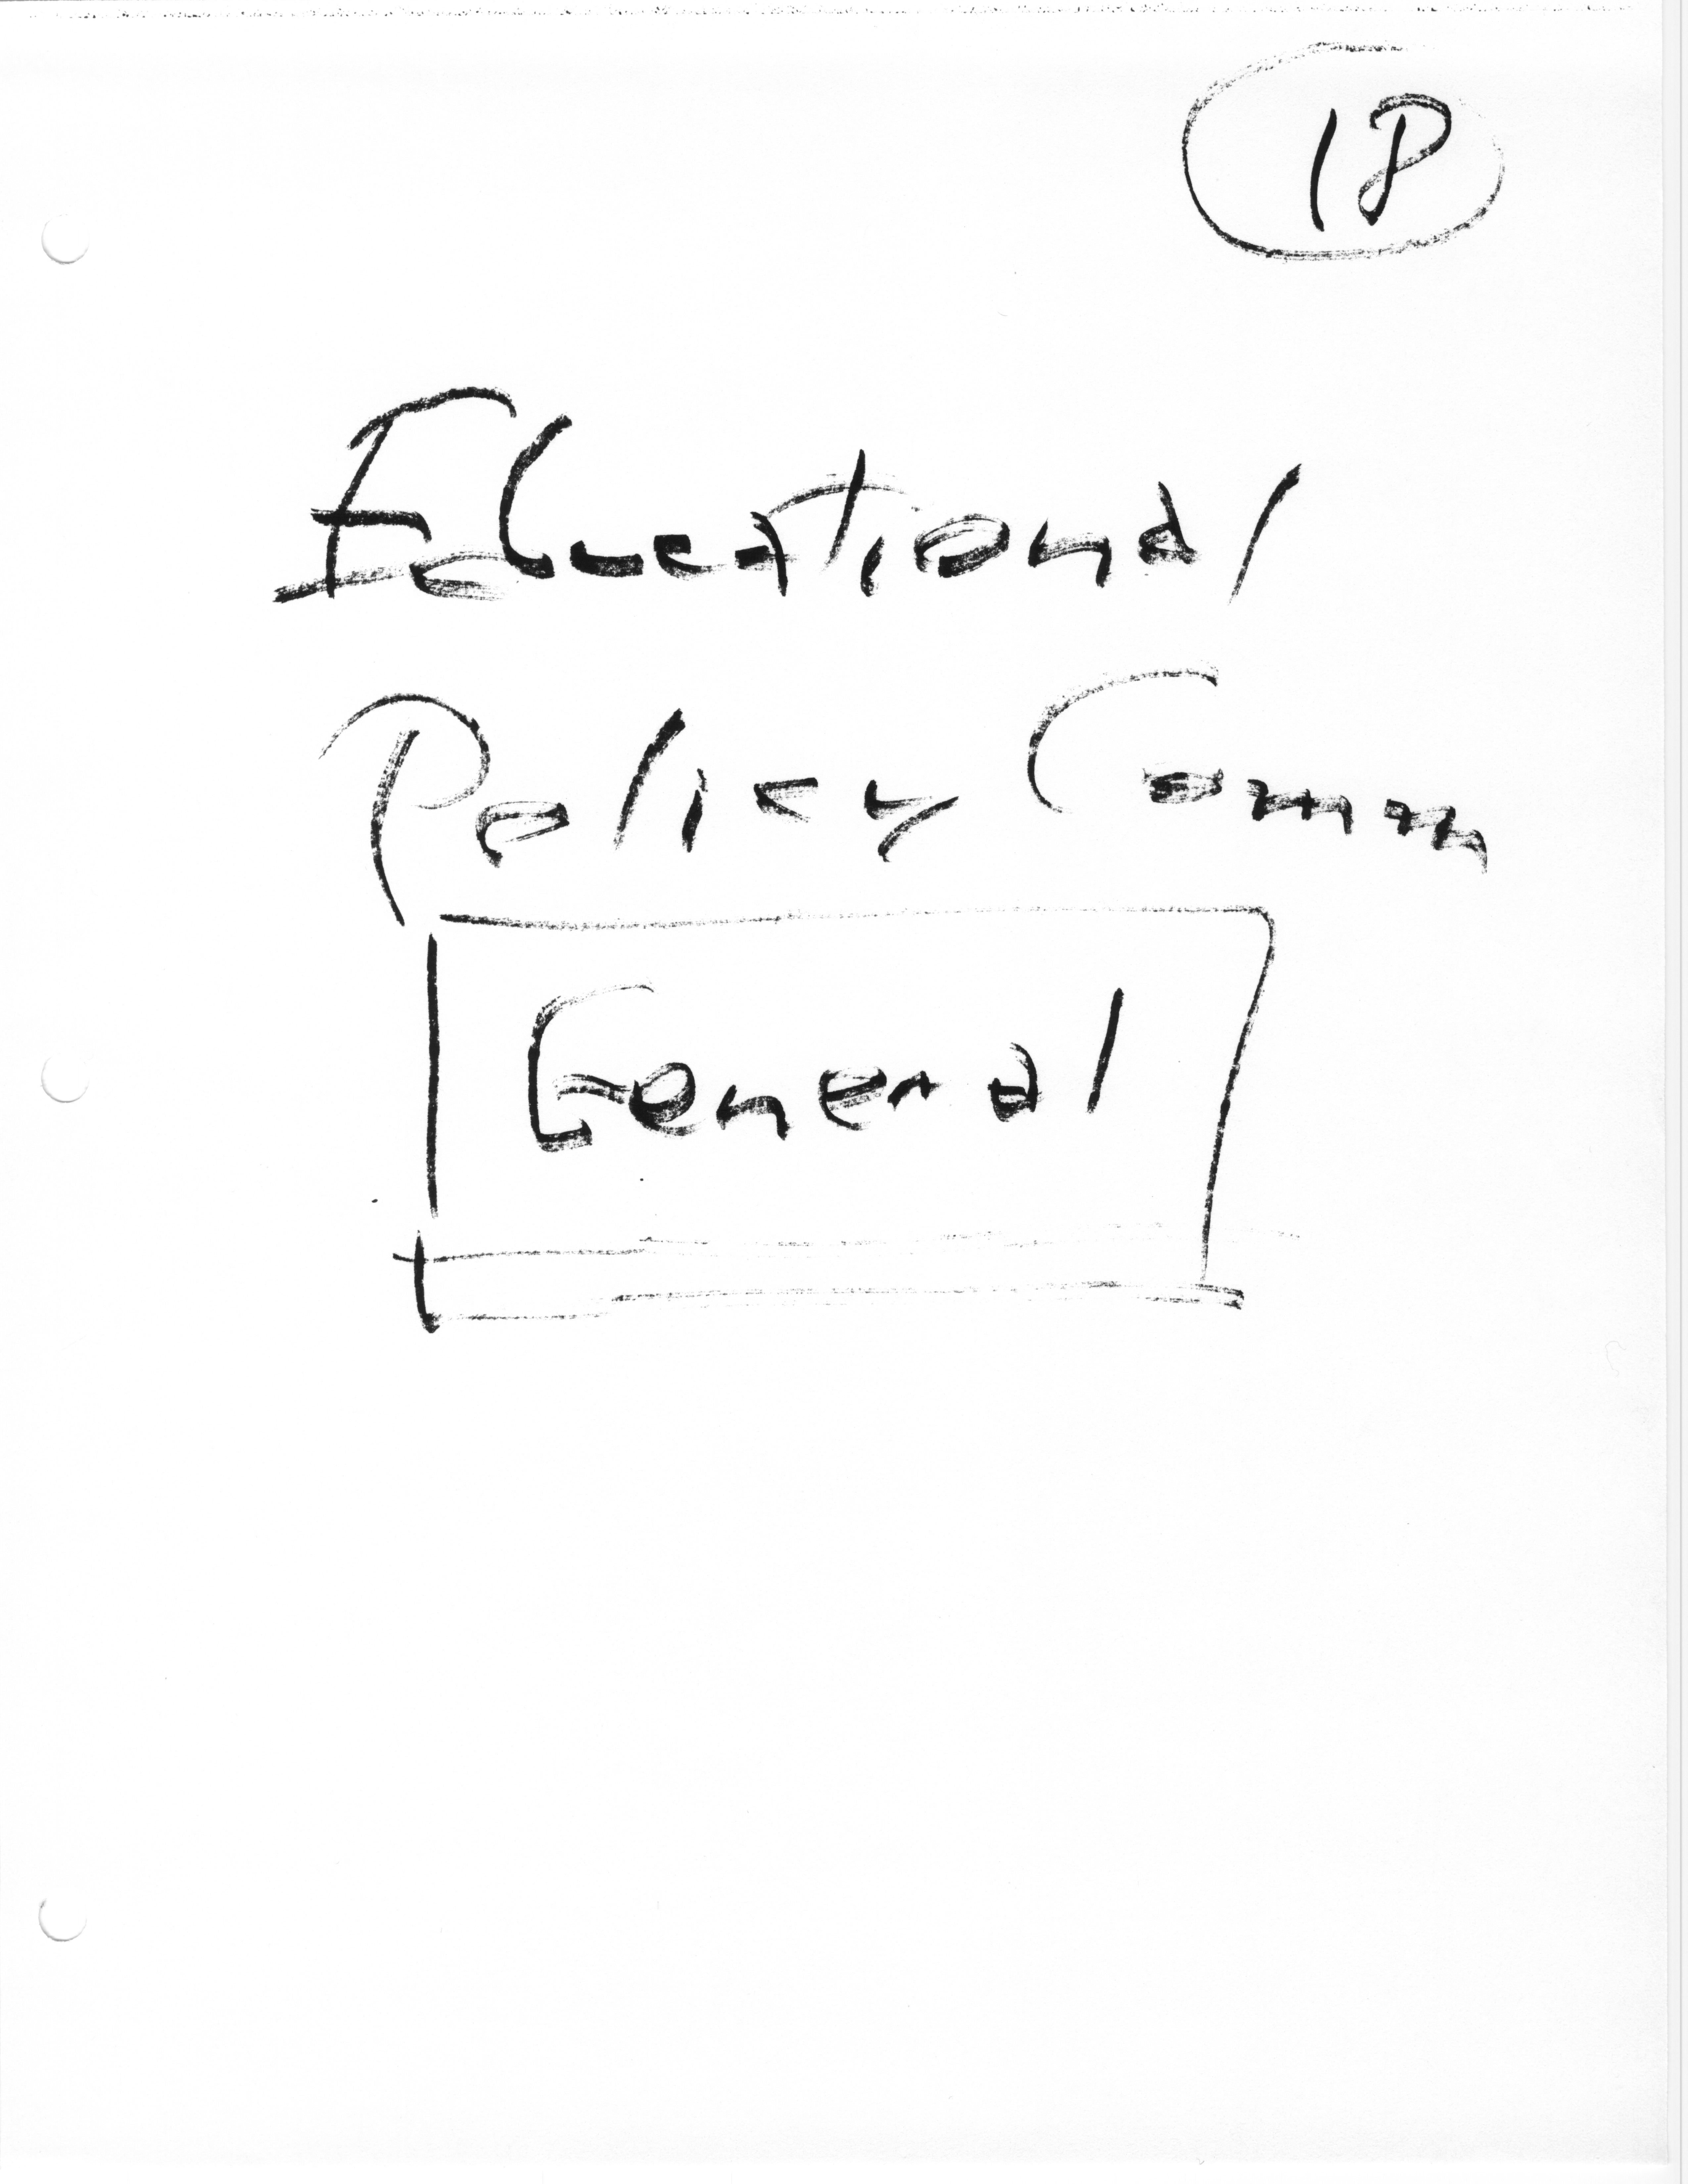 18
Educational
Policy Comm
General